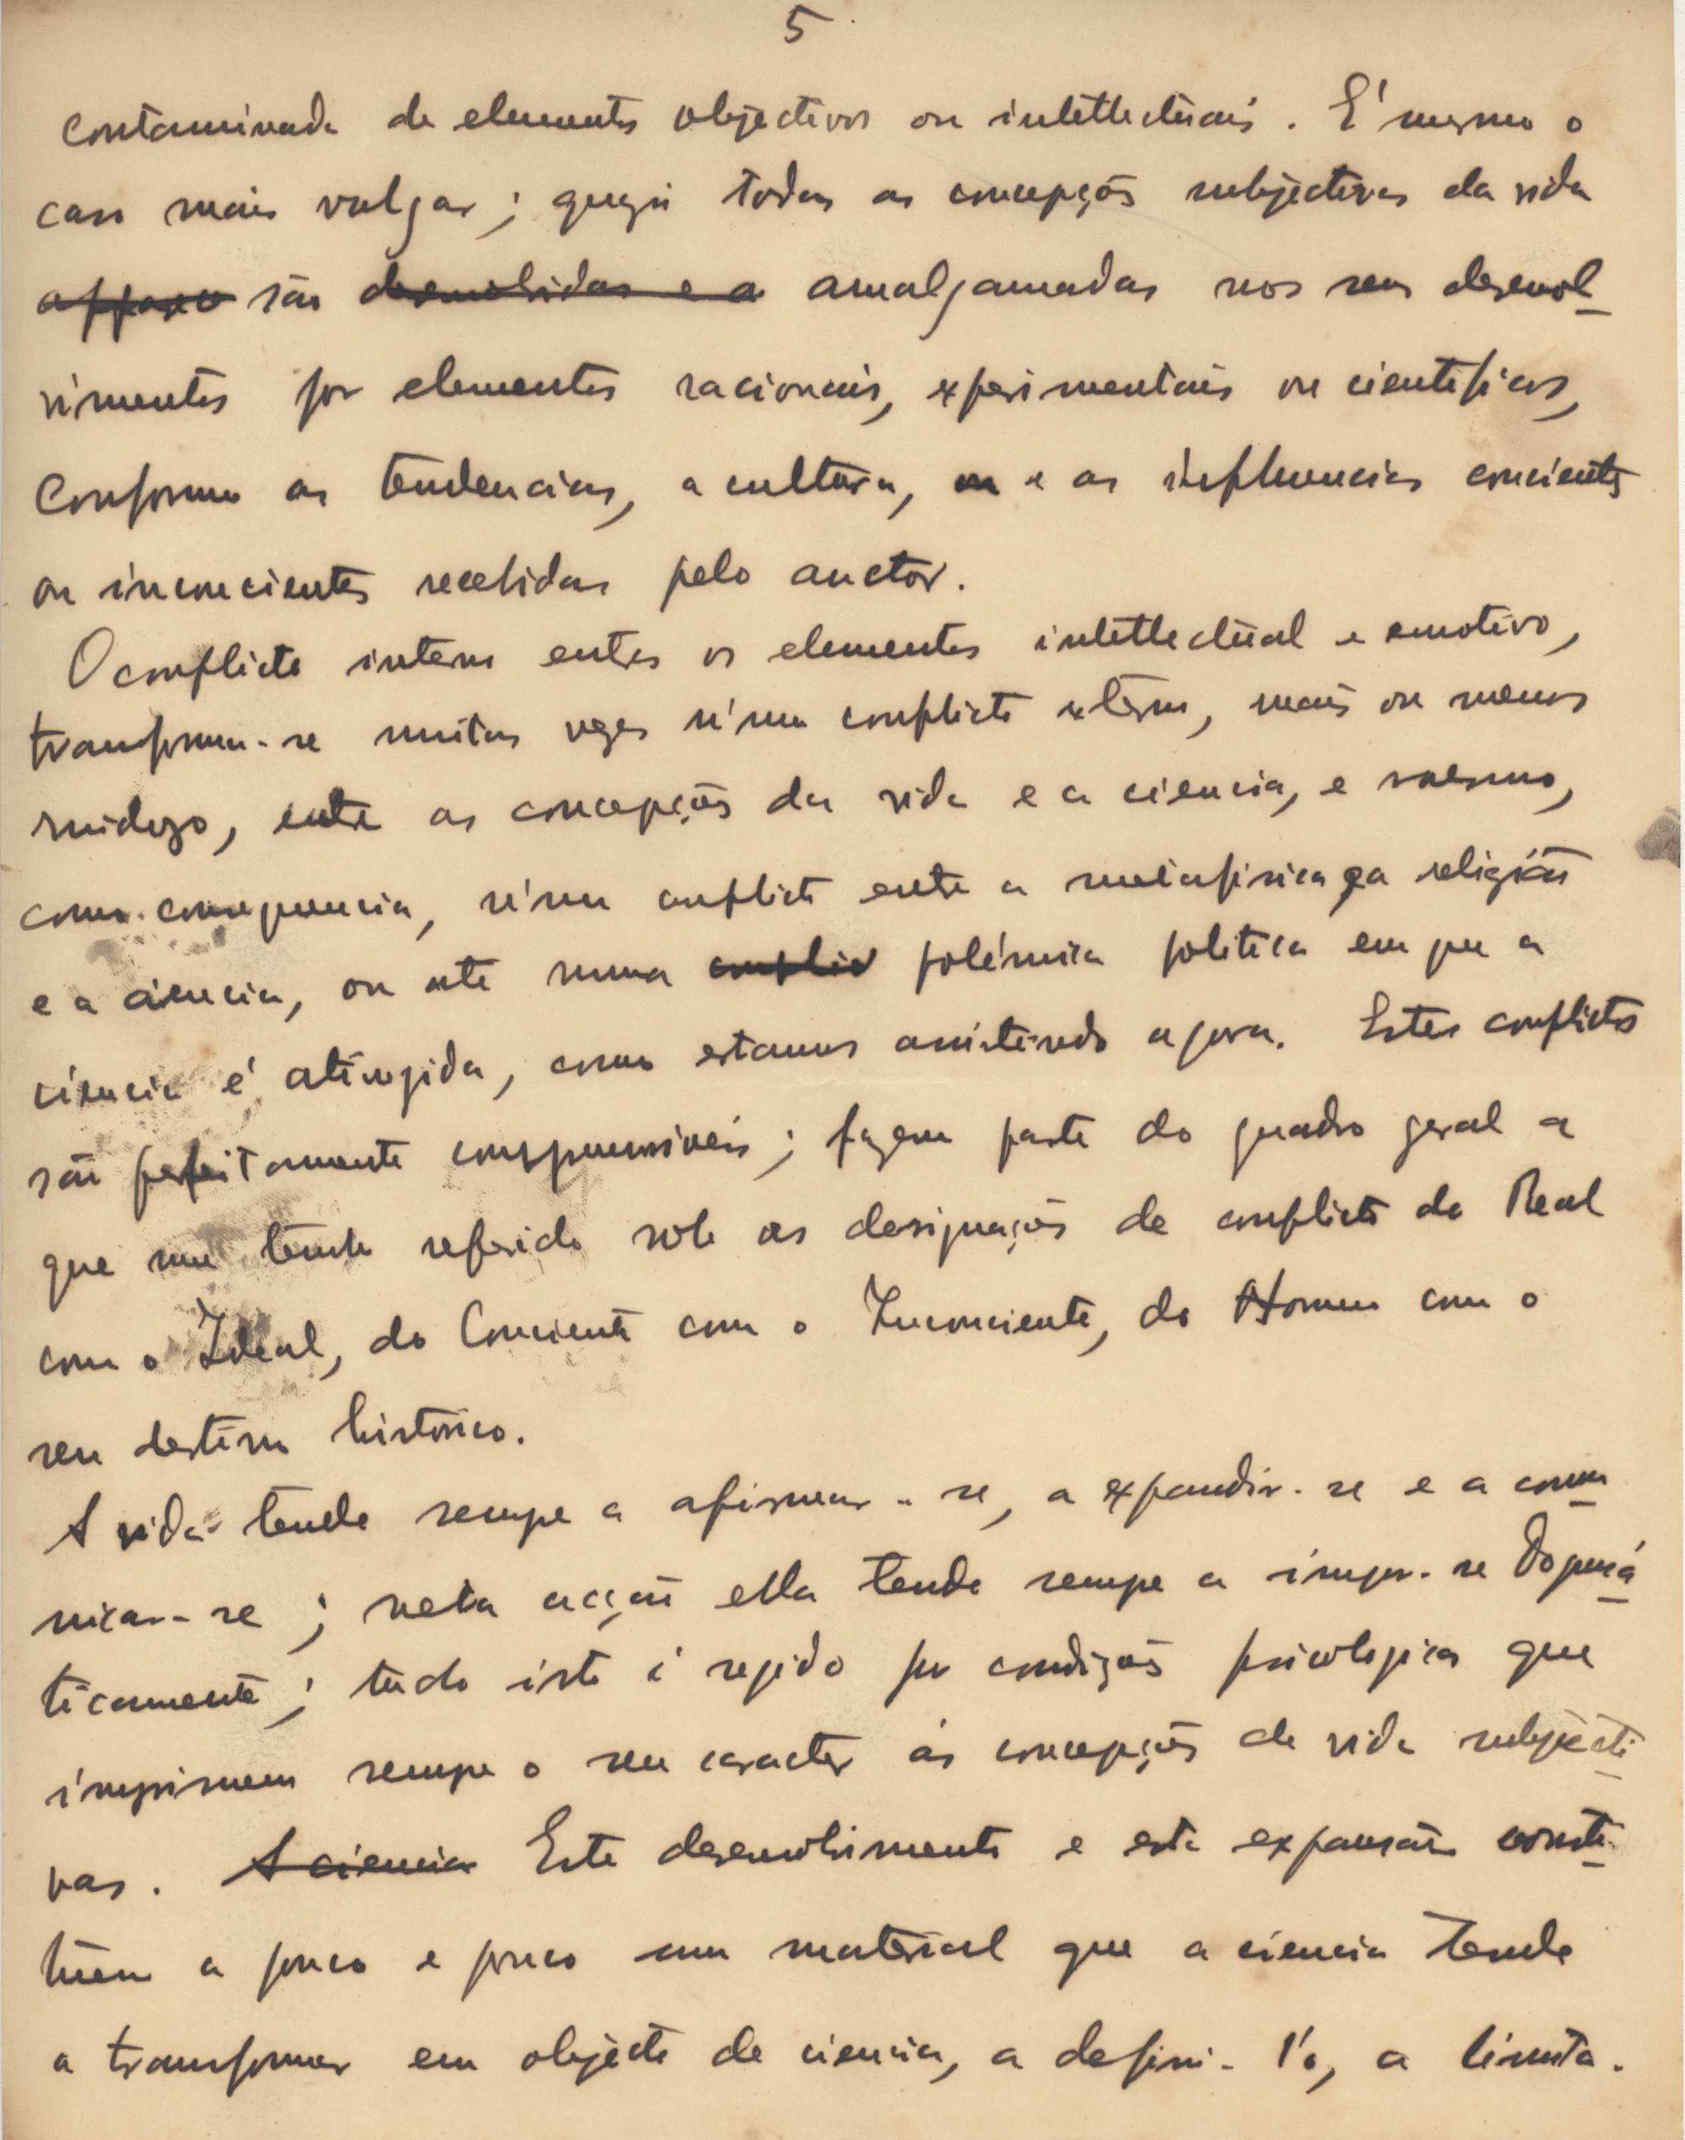 5
contaminada de elementos objectivos ou intellectuais. É mesmo o
caso mais vulgar; quazi todas as concepções subjectivas da vida
são desenvolvidas e a amalgamadas nos seus desenvol-
vimentos por elementos racionais, experimentais ou cientificos,
conforme as tendencias, a cultura, e as influencias concientes
ou inconcientes recebidas pelo auctor.
O conflicto interno entre os elementos intellectual e emotivo,
transforma-se muitas vezes n'um conflicto externo, mais ou menos
ruidozo, entre as concepções da vida e a ciencia, e mesmo,
como consequencia, n'um conflicto entre a metafisica e a religião
e a ciencia, ou até numa conflicto polémica politica em que a
ciencia é atingida, como estamos assistindo agora. Estes conflictos
são perfeitamente comprensiveis; fazem parte do quadro geral a
que me tenho referido sob as designações de conflicto do Real
com o Ideal, do Conciente com o Inconciente, do Homem com o
seu destino historico.
A vida tende sempre a afirmar-se, a expandir-se e a comu-
nicar-se; nesta acção ella tende sempre a impor-se dogmá-
ticamente; tudo isto é regido por condições psicologicas que
imprimem sempre o seu caracter ás concepções de vida subjecti-
vas. A ciencia Este desenvolvimento e esta expansão consti-
tuem a pouco e pouco um material que a ciencia tende
a transformar em objecto de ciencia, a defini-l'o, a limita-